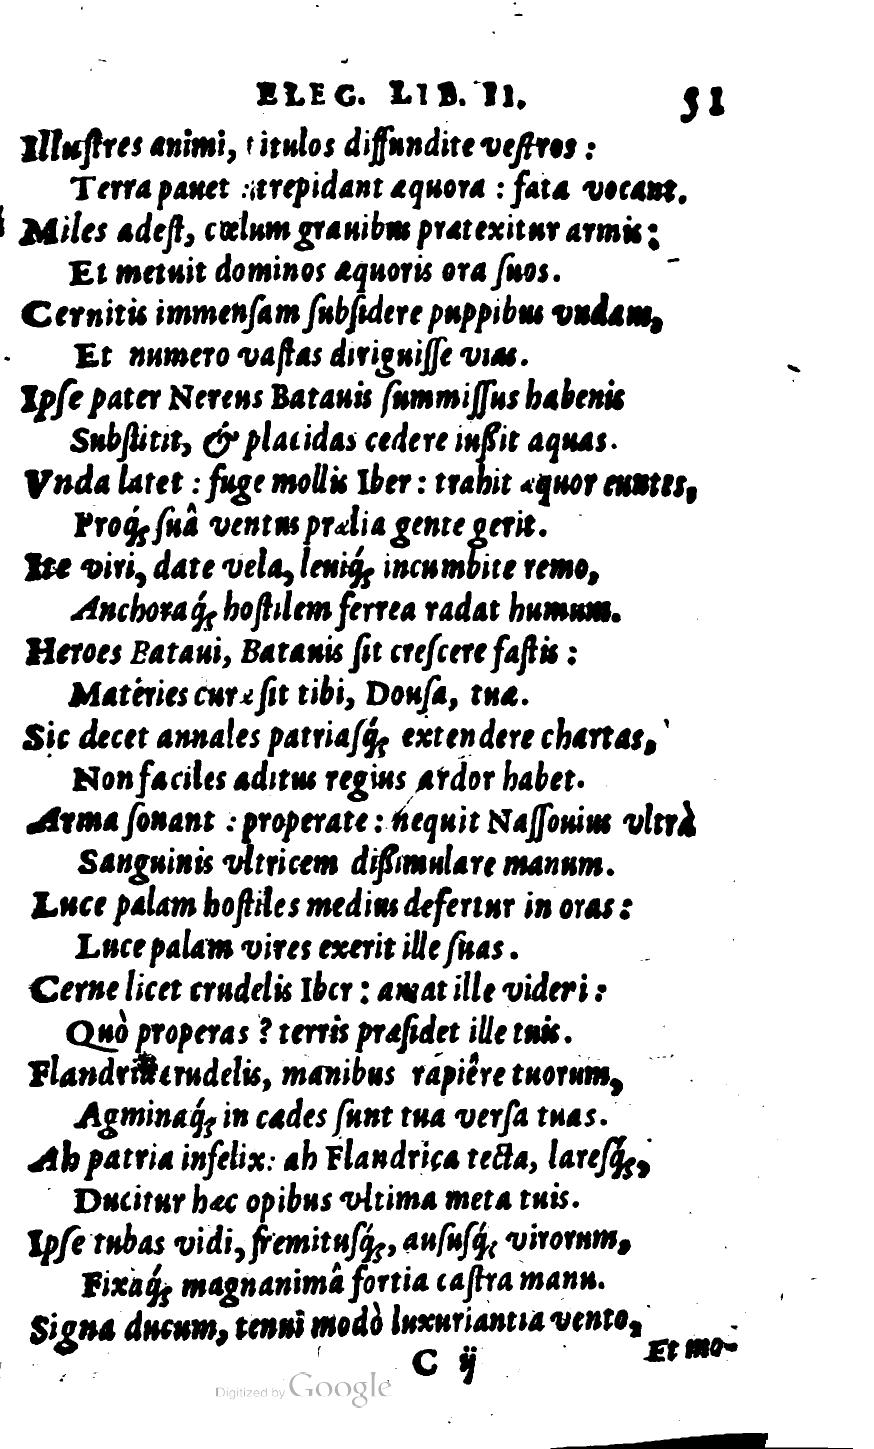 ELEG. LIB. II. 51
Illuſtres animi, titulos diffundite veſtros :
Terra pauet : trepidant æquora : fata vocant.
Miles adeſt, cœlum grauibus prætexitur armis :
Et metuit dominos æquoris ora ſuos.
Cernitis immenſam ſubſidere puppibus vndam,
Et numero vaſtas diriguiſſe vias.
Ipſe pater Nereus Batauis ſummiſſus habenis
Subſtitit, & placidas cedere iußit aquas.
Vnda latet : fuge mollis Iber : trahit æquor euntes,
Proq́; ſuâ ventus prælia gente gerit.
Ite viri, date vela, leuiq́; incumbite remo,
Anchoraq́; hoſtilem ferrea radat humum.
Heroes Bataui, Batauis ſit creſcere faſtis :
Materies curæ ſit tibi, Douſa, tuæ.
Sic decet annales patriaſq́; extendere chartas,
Non faciles aditus regius ardor habet.
Arma ſonant : properate : nequit Naſſouius vltrà
Sanguinis vltricem dißimulare manum.
Luce palam hoſtiles medius defertur in oras :
Luce palam vires exerit ille ſuas.
Cerne licet crudelis Iber : amat ille videri :
Quò properas ? terris præſidet ille tuis.
crudelis, manibus rapiêre tuorum,
Agminaq́; in cædes ſunt tua verſa tuas.
Ah patria infelix: ah Flandrica tecta, lareſq́;,
Ducitur hæc opibus vltima meta tuis.
Ipſe tubas vidi, fremituſq́;, auſuſq́; virorum,
Fixaq́; magnanimâ fortia caſtra manu.
Signa ducum, tenui modò luxuriantia vento,
Et mo-
C ij
Digitized by Google